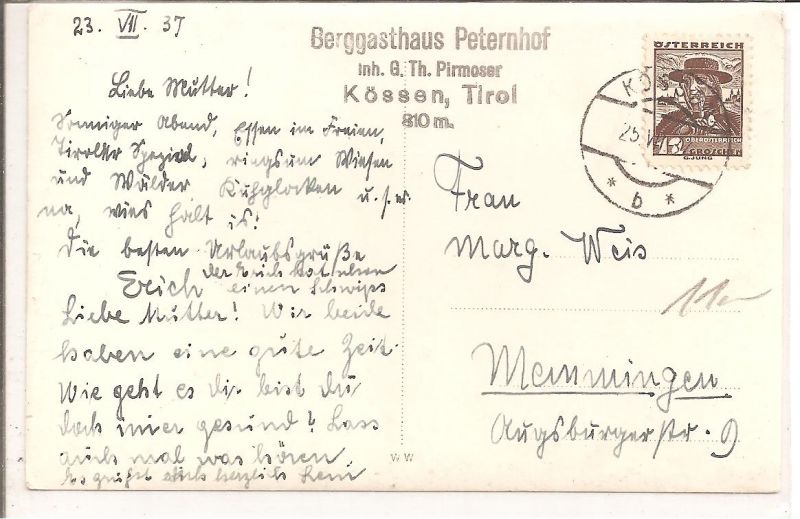 23. VII. 37
Liebe Mutter!
Sonniger Abend, Essen im Freien,
Tiroler Spezial, ringsum Wiesen
und Wälder Kuhglocken u.s.w.
na, wies halt is!
Die besten Urlaubsgrüße
Erich
der Erich hat schon
einen Schwips
Liebe Mutter! Wir beide
haben eine gute Zeit.
Wie geht es dir bist du
doch imer gesund? Lass
auch mal was hören.
Es grüßt dich herzlich
Berggasthaus Peternhof
Inh. G. Th. Pirmoser
Kössen, Tirol
810 m.
ÖSTERREICH
OBERÖSTERREICH
GROSCHEN
G. JUNG
KÖ
25.V
* b *
Frau
Marg. Weis
Memmingen
Augsburgerstr. 9
W W